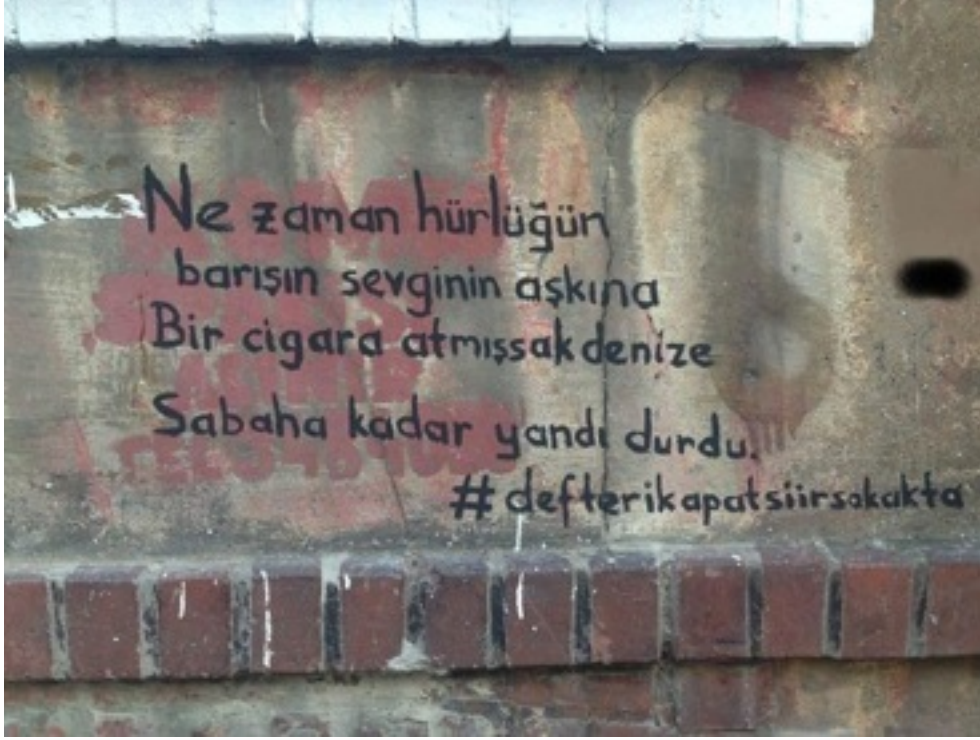 Ne zaman hürlüğün
barışın sevginin aşkına
Bir cigara atmışsak denize
Sabaha kadar yandı durdu.
#defterikapatsiirsokakta